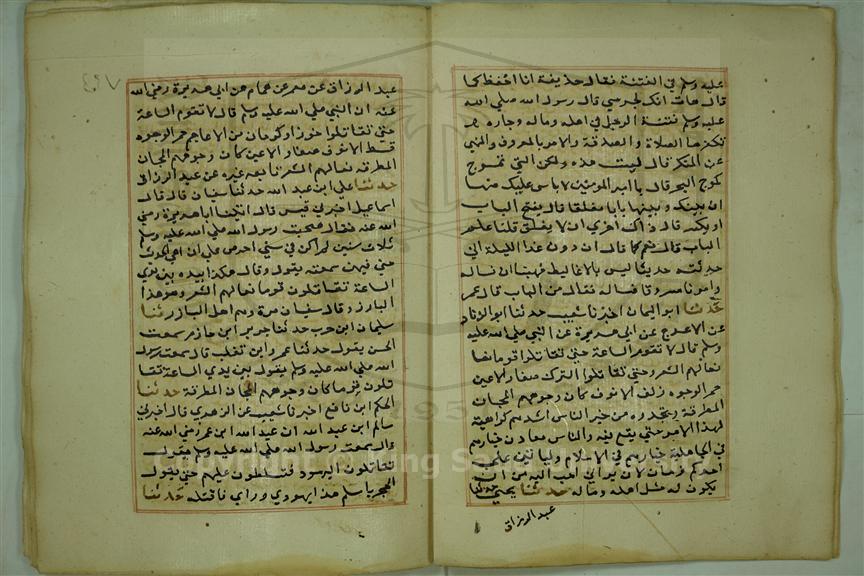 عليه وسلم في الفتنة فقال حذيفة انا احفظ كما
قال قال هات انك لجرمي قال رسول الله صلي الله
عليه وسلم فتنة الرجل في اهله وماله وجاره
تكفرها الصلاة والصدقة والامر بالمعروف والنهي
عن المنكر قال ليست هذه ولكن التي تموج
كموج البحر قال يا امير المومنين لا باس عليك منها
ان بينك وبينها بابا مغلقا قال يفتح الباب
او يكسر قال ذاك احري ان لا يغلق قلنا علم
الباب قال نعم كما ان دون غدا الليلة اني
حدثته حديثا ليس بالاغاليط فهبنا ان نساله
وامرنا مسروقا فساله فقال من الباب قال عمر
حدثنا ابو اليمان اخبرنا شعيب حدثنا ابو الزناد
عن الاعرج عن ابي هريرة عن النبي صلي الله عليه
وسلم قال لا تقوم الساعة حتي تقاتلوا قوما
نعالهم الشعر وحتي تقاتلوا الترك صغار الاعين
حمر الوجوه زلف الانوف كان وجوههم المجان
المطرقة وتجدون من خير الناس اشدهم كراهية
لهذا الامر حتي يقع فيه والناس معادن خيارهم
في الجاهلية خيارهم في الاسلام ولياتين علي
احدكم زمان لان يراني احب اليه من ان
يكون له مثل اهله وماله حدثنا يحيي حدثنا
عبد الرزاق
عبد الرزاق عن معمر عن همام عن ابي هريرة رضي الله
عنه ان النبي صلي الله عليه وسلم قال لا تقوم الساعة
حتي تقاتلوا خوزا وكرمان من الاعاجم حمر الوجوه
فطس الانوف صغار الاعين كان وجوههم المجان
المطرقة نعالهم الشعر تابعه غيره عن عبد الرزاق
حدثنا علي ابن عبد الله حدثنا سفيان قال قال
اسماعيل اخبرني قيس قال اتينا ابا هريرة رضي
الله عنه فقال صحبت رسول الله صلي الله عليه وسلم
ثلاث سنين لم اكن في سني احرص علي ان اعي الحديث
مني فيهن سمعته يقول وقال هكذا بيده بين يدي
الساعة تقاتلون قوما نعالهم الشعر وهو هذا
البارز وقال سفيان مرة وهم اهل البازر ثنا
سليمان ابن حرب حدثنا جرير ابن حازم سمعت
الحسن يقول حدثنا عمرو ابن تغلب قال سمعت رسول
الله صلي الله عليه وسلم يقول بين يدي الساعة تقا
تلون قوما كان وجوههم المجان المطرقة حدثنا
الحكم ابن نافع اخبرنا شعيب عن الزهري قال اخبرني
سالم ابن عبد الله ان عبد الله ابن عمر رضي الله عنه
قال سمعت رسول الله صلي الله عليه وسلم يقول
تقاتلون اليهود فتسلطون عليهم حتي يقول
الحجر يا مسلم هذا يهودي وراي فاقتله حدثنا